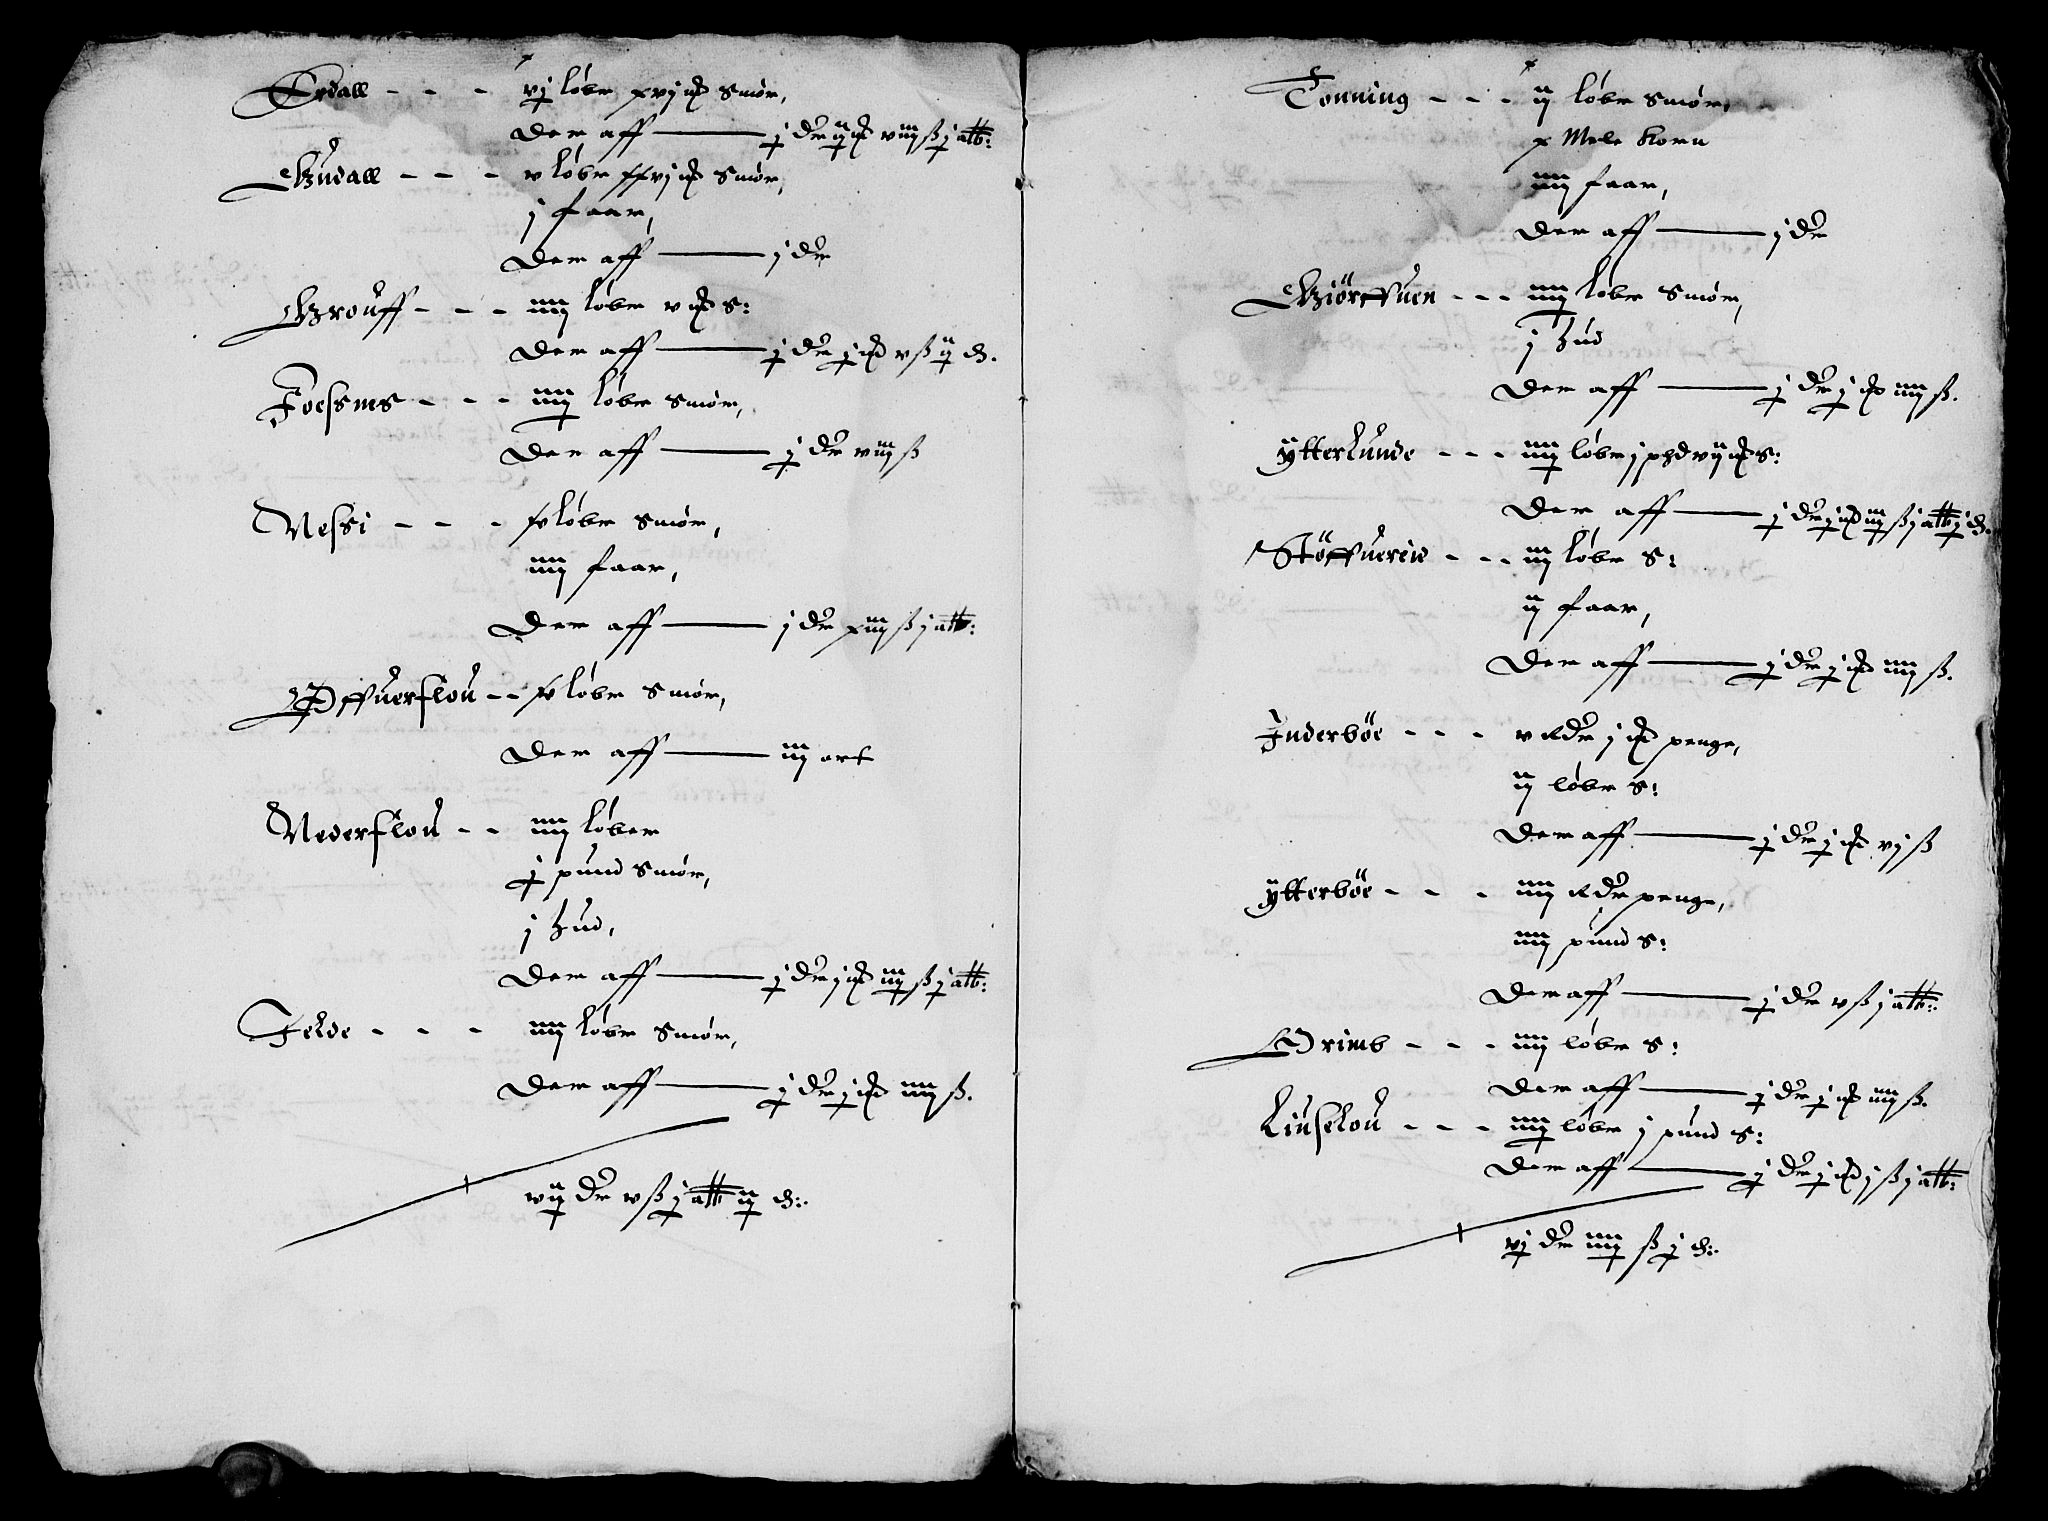 Erdall - - - vj løber xvj mk smør,
Der aff — j dr ij mk viij ß j alb:
Budall - - - v løber xxvj mk smør,
j faar,
Der aff — j dr
Brouff - - - iiij løber v mk s:
Der aff — j dr j mk v ß ij d.
Foessms - - - iiij løber smør,
Der aff — j dr viij ß
Nessi - - - xv løber smør,
iiij faar,
Der aff — j dr xiij ß j alb:
Offuerflou - - xv løber smør,
Der aff — iij ort
Nederflou - - iiij løber
j pund smør,
j hud,
Der aff — j dr j mk iij ß j alb:
Felde - - - iiij løber smør,
Der aff — j dr j mk iiij ß.
vij dr v ß j alb ij d:
Tonning - - - ij løber smør,
x Mele korn
iiij faar,
Der aff — j dr
Biørffuen - - - iiij løber smør,
j hud
Der aff — j dr j mk iiij ß.
ytterlunde - - - iiij løber j phd vij mk s:
Der aff — j dr j mk iij ß j alb j d.
Støffuerein - - - iij løber s:
ij faar,
Der aff — j dr j mk iiij ß.
Inderbøe - - - v Rdr j mk penge,
ij løber s:
Der aff — j dr j mk vj ß
ytterbøe - - - iiij Rdr penge,
iiij pund s:
Der aff — j dr v ß j alb:
Drimb - - - iiij løber s:
Der aff — j dr j mk iiij ß.
Liuselou - - - iiij løber j pund s:
Der aff — j dr j mk j ß j alb:
vj dr iiij ß j d: